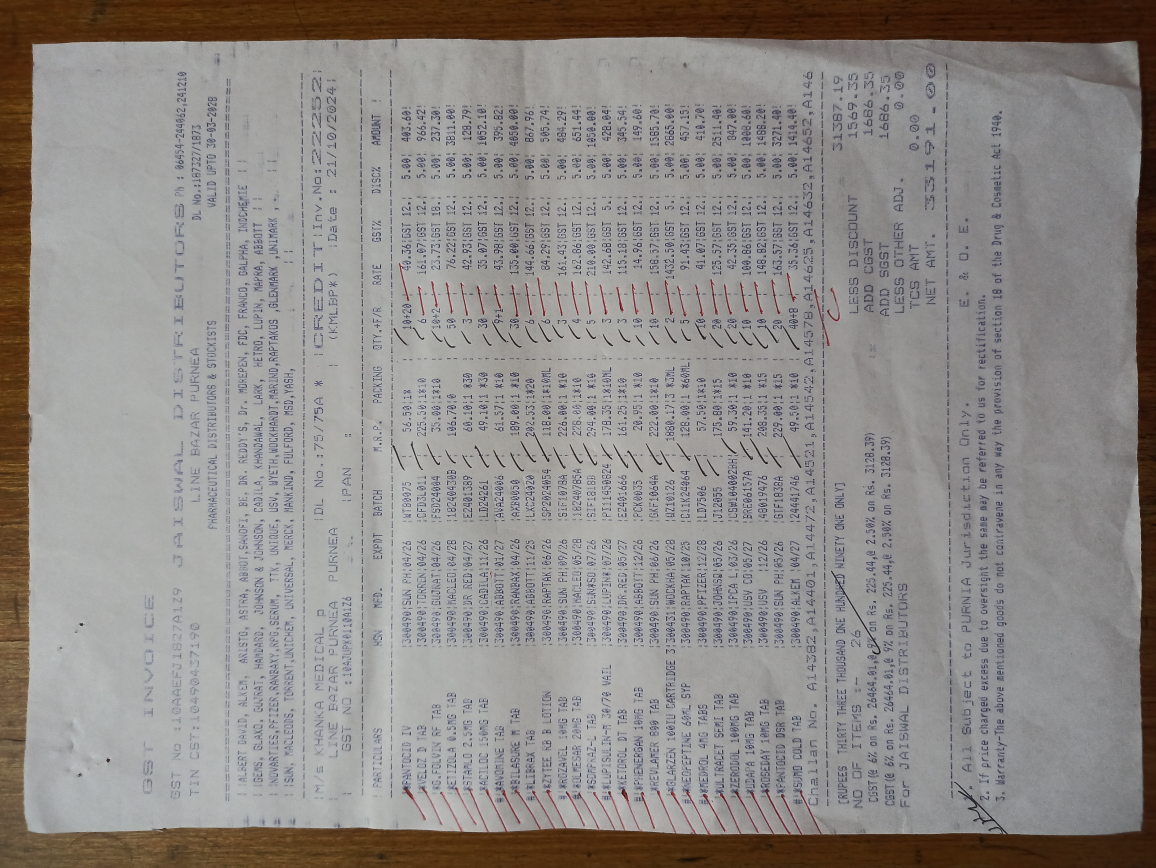 GST INVOICE
GST No :10AAEFJ1827A1Z9 JAISWAL DISTRIBUTORS Ph : 06454-244062,241210
TIN CST:10490437190 LINE BAZAR PURNEA DL No.:18722/1873
PHARMACEUTICAL DISTRIBUTORS & STOCKISTS VALID UPTO 30-03-2028
ALBERT DAVID, ALKEM, ARISTO, ASTRA, ABBOT,SANOFI, BE, DR. REDDY'S, Dr. MOREPEN, FDC, FRANCO, CALPHA, INDCHEMIE
GEMS, GLAXO, GUJRAT, HAMDARD, JOHNSON & JOHNSON, CADILA, KHANDAWAL, LARK, HETRO, LUPIN, MAPRA, ABBOTT
INNOVARTIES,PFIZER,RANBAXY,RPG,SERUM, TTK, UNIQUE, USV, WYETH,WOCKHARDT,MARIND,RAPTAKOS ,GLENMARK ,UNIMARK
SUN, MACLEODS, TORRENT,UNICHEM, UNIVERSAL, MERCK, MANKIND, FULFORD, MSD,YASH,
M/s KHANKA MEDICAL p DL No.:75/75A * CREDIT Inv.No:22252
LINE BAZAR PURNEA PURNEA (KMLBP*) Date : 21/10/2024
GST NO :10AJUPK0110A1Z6 PAN :
PARTICULARS HSN MFD. EXPDT BATCH M.R.P. PACKING QTY.+F/R RATE GST% DISC% AMOUNT !
PANTOCID IV 300490 SUN PH 04/26 WTB0075 56.50 1* 10+20 40.36 GST 12. 5.00 403.60
VELOZ D TAB 300490 TORREN 04/26 CFD3L011 225.50 1*10 6 161.07 GST 12. 5.00 966.42
G.FOLVIN RF TAB 300490 GUJRAT 04/26 FSD24004 35.00 1*10 10+2 23.73 GST 18. 5.00 237.30
ETIZOLA 0.5MG TAB 300490 MACLEO 04/28 18240430B 106.70 0 50 76.22 GST 12. 5.00 3811.00
STAMLO 2.5MG TAB 300490 DR RED 04/27 E2401389 60.10 1 *30 3 42.93 GST 12. 5.00 128.79
ACILOC 150MG TAB 300490 CADILA 11/26 LD24261 49.10 1 *30 30 35.07 GST 12. 5.00 1052.10
AVOMINE TAB 300490 ABBOTT 01/27 AVA24006 61.57 1 *10 9+1 43.98 GST 12. 5.00 395.82
BILASURE M TAB 300490 RANBAX 04/26 RAX0030 189.00 1 *10 30 135.00 GST 12. 5.00 4050.00
LIBRAX TAB 300490 ABBOTT 11/25 LXC24020 202.53 1*20 6 144.66 GST 12. 5.00 867.96
ZYTEE RB B LOTION 300490 RAPTAK 06/26 SPD24054 118.00 1*10ML 6 84.29 GST 12. 5.00 505.74
ROZAVEL 10MG TAB 300490 SUN PH 09/26 SIF1078A 226.00 1 *10 3 161.43 GST 12. 5.00 484.29
OLMESAR 20MG TAB 300490 MACLEO 05/28 18240785A 228.00 1*10 4 162.86 GST 12. 5.00 651.44
SOMPRAZ-L TAB 300490 SUN*SU 07/26 SIF1818B 294.00 1 *10 5 210.00 GST 12. 5.00 1050.00
LUPISULIN-M 30/70 VAIL 300490 LUPIN* 07/26 PI11450B24 178.35 1*10ML 3 142.68 GST 5. 5.00 428.04
KETOROL DT TAB 300490 DR.RED 05/27 E2401666 161.25 1*10 3 115.18 GST 12. 5.00 345.54
PHENERGAN 10MG TAB 300490 ABBOTT 12/26 PCK0035 20.95 1 *10 10 14.96 GST 12. 5.00 149.60
REVLAMER 800 TAB 300490 SUN PH 04/26 GKF1064A 222.00 1*10 10 158.57 GST 12. 5.00 1585.70
GLARZEN 100IU CARTRIDGE 3 300431 WOCKHA 05/28 WZ10126 1880.17 3 *3ML 2 1432.50 GST 5. 5.00 2865.00
REDPEPTINE 60ML SYP 300490 RAPTAK 10/25 CU1K24064 128.00 1 *60ML 5 91.43 GST 12. 5.00 457.15
MEDROL 4MG TABS 300490 PFIZER 12/28 LD7506 57.50 1*10 10 41.07 GST 12. 5.00 410.70
ULTRACET SEMI TAB 300490 JOHNSO 05/26 J12055 175.80 1*15 20 125.57 GST 12. 5.00 2511.40
ZERODOL 100MG TAB 300490 IPCA L 03/26 CSW104002BH 59.30 1 *10 20 42.35 GST 12. 5.00 847.00
UDAPA 10MG TAB 300490 USV CO 05/27 BRE06157A 141.20 1 *10 10 100.86 GST 12. 5.00 1008.60
ROSEDAY 10MG TAB 300490 USV 12/26 48019476 208.35 1 *15 10 148.82 GST 12. 5.00 1488.20
PANTOCID DSR TAB 300490 SUN PH 05/26 GTF1838A 229.00 1 *15 20 163.57 GST 12. 5.00 3271.40
SUMO COLD TAB 300490 ALKEM 04/27 24441746 49.50 1 *10 40+8 35.36 GST 12. 5.00 1414.40
Challan No. A14382,A14401,A14472,A14521,A14542,A14578,A14625,A14632,A14652,A146
31387.19
[RUPEES THIRTY THREE THOUSAND ONE HUNDRED NINETY ONE ONLY] LESS DISCOUNT 1569.35
NO OF ITEMS :- 26 ADD CGST 1686.35
CGST(@ 6% on Rs. 26464.01,@ 9% on Rs. 225.44,@ 2.50% on Rs. 3128.39) ADD SGST 1686.35
CGST(@ 6% on Rs. 26464.01,@ 9% on Rs. 225.44,@ 2.50% on Rs. 3128.39) LESS OTHER ADJ. 0.00
For JAISWAL DISTRIBUTORS TCS AMT 0.00
NET AMT. 33191.00
All Subject to PURNIA Jurisdiction Only. E. & O. E.
2. If price charged excess due to oversight the same may be referred to us for rectification.
3. Warranty-The above mentioned goods do not contravene in any way the provision of section 18 of the Drug & Cosmetic Act 1940.